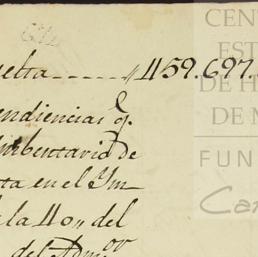 uelta ----- „ 459.697.
endiencias q.
imbentario de
ta en el Ym
la 40,, del
del Admor
CEN
EST
DE H
DE M
FUN
Car